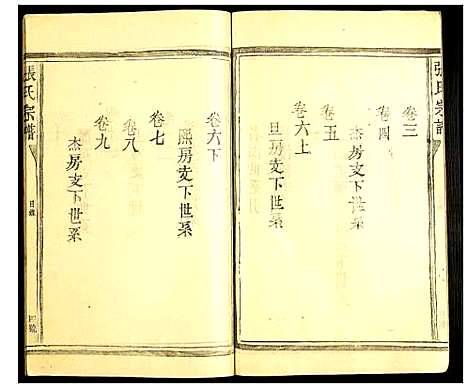 張氏宗譜
卷三
卷四
杰房支下世系
卷五
卷六上
旦房支下世系
卷六下
熙房支下世系
卷七
卷八
卷九
杰房支下世系
張氏宗譜
目錄
四號